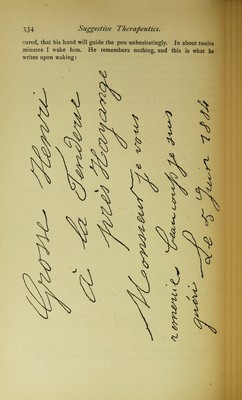 334 Suggestive Therapeutics.
cured, that his hand will guide the pen unhesitatingly. In about twelve
minutes I wake him. He remembers nothing, and this is what he
writes upon waking:
Grosse Henri
à la Fenderie
près Hayange
Monsieur je vous
remercie beaucoup je suis
guéri — Le 5 Juin 1884